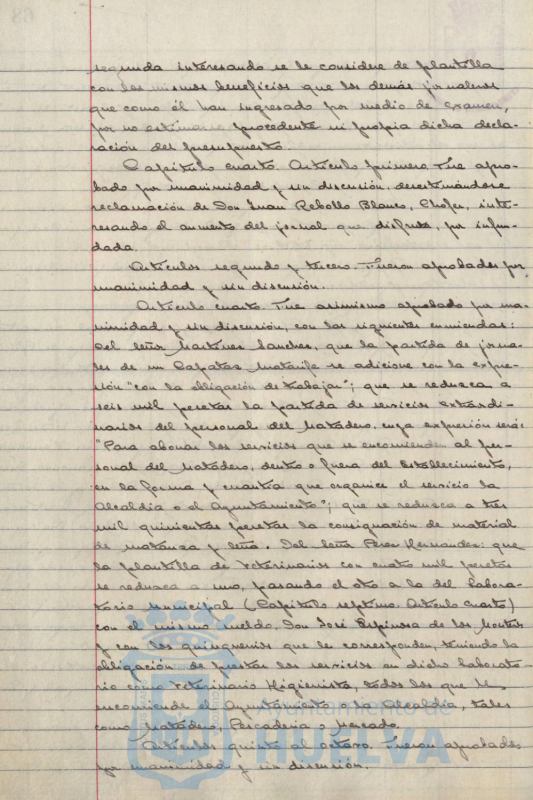 segunda interesando se le considere de plantilla
con los mismos beneficios que los demás jornaleros
que como él han ingresado por medio de examen,
por no estimarse procedente ni propia dicha decla-
ración del presupuesto.
Capítulo cuarto. Artículo primero. Fue apro-
bado por unanimidad y sin discusión, desestimándose
reclamación de Don Juan Rebollo Blanco, Chofer, inte-
resando el aumento del jornal que disfruta, por infun-
dada.
Artículos segundo y tercero. Fueron aprobados por
unanimidad y sin discusión.
Artículo cuarto. Fue asimismo aprobado por una-
nimidad y sin discusión, con las siguientes enmiendas:
Del Señor Martínez Sanchez, que la partida de jorna-
les de un Capataz Matarife se adicione con la expre-
sión "con la obligación de trabajar"; que se reduzca a
seis mil pesetas la partida de servicios extraordi-
narios del personal del Matadero, cuya expresión será:
"Para abonar los servicios que se encomienden al per-
sonal del Matadero, dentro o fuera del Establecimiento,
en la forma y cuantía que organice el servicio la
Alcaldía o el Ayuntamiento"; que se reduzca a tres
mil quinientas pesetas la consignación de material
de matanza y leña. Del Señor Perez Hernandez: que
la plantilla de Veterinarios con cuatro mil pesetas
se reduzca a uno, pasando el otro a la del Labora-
torio Municipal (Capítulo séptimo. Artículo Cuarto)
con el mismo sueldo, Don José Espinosa de los Monteros
y con los quinquenios que le correspondan, teniendo la
obligación de prestar los servicios en dicho Laborato-
rio como Veterinario Higienista, todos los que le
encomiende el Ayuntamiento o la Alcaldía, tales
como Matadero, Pescadería o Mercado.
Artículos quinto al octavo. Fueron aprobados
por unanimidad y sin discusión.
Ayuntamiento de
HUELVA